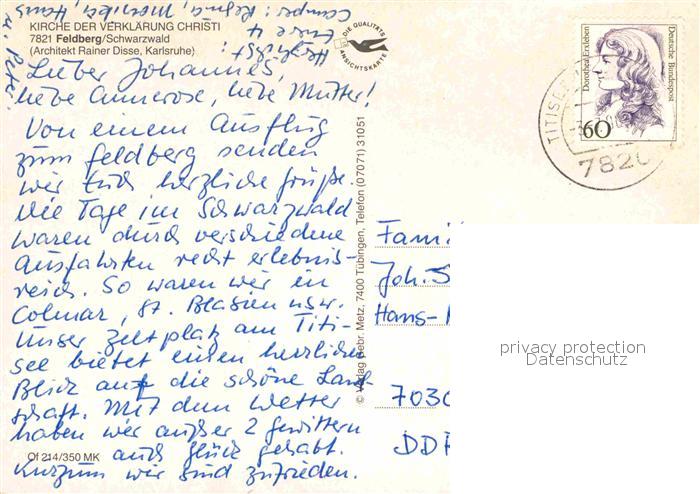 KIRCHE DER VERKLÄRUNG CHRISTI
7821 Feldberg/Schwarzwald
(Architekt Rainer Disse, Karlsruhe)
Lieber Johannes,
liebe Annerose, liebe Mutter!
Von einem Ausflug
zum Feldberg senden
wir Euch herzliche Grüße.
Die Tage im Schwarzwald
waren durch verschiedene
Ausfahrten recht erlebnis-
reich. So waren wir in
Colmar, St. Blasien usw.
Unser Zeltplatz am Titi-
see bietet einen herrlichen
Blick auf die schöne Land-
schaft. Mit dem Wetter
haben wir außer 2 Gewittern
auch Glück gehabt.
Kurzum wir sind zufrieden.
Herzlichst:
Eure 4
Camper: Regina, Monika, Hans
u. Peter
Of 214/350 MK
DIE QUALITÄTS
ANSICHTSKARTE
© Verlag Gebr. Metz, 7400 Tübingen, Telefon (07071) 31051
Dorothea Erxleben
Deutsche Bundespost
60
TITISEE
7820
Fami
Joh. S
Hans-
7030
DDR
privacy protection
Datenschutz